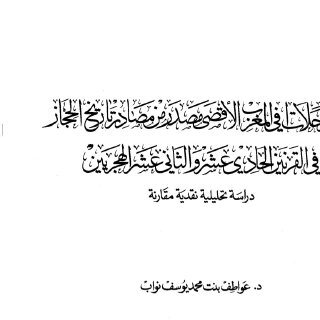 حلات في المغرب الأقصى مصدر من مصادر تاريخ الحجاز
في القرنين الحادي عشر والثاني عشر الهجريين
دراسة تحليلية نقدية مقارنة
د. عواطف بنت محمد يوسف نواب